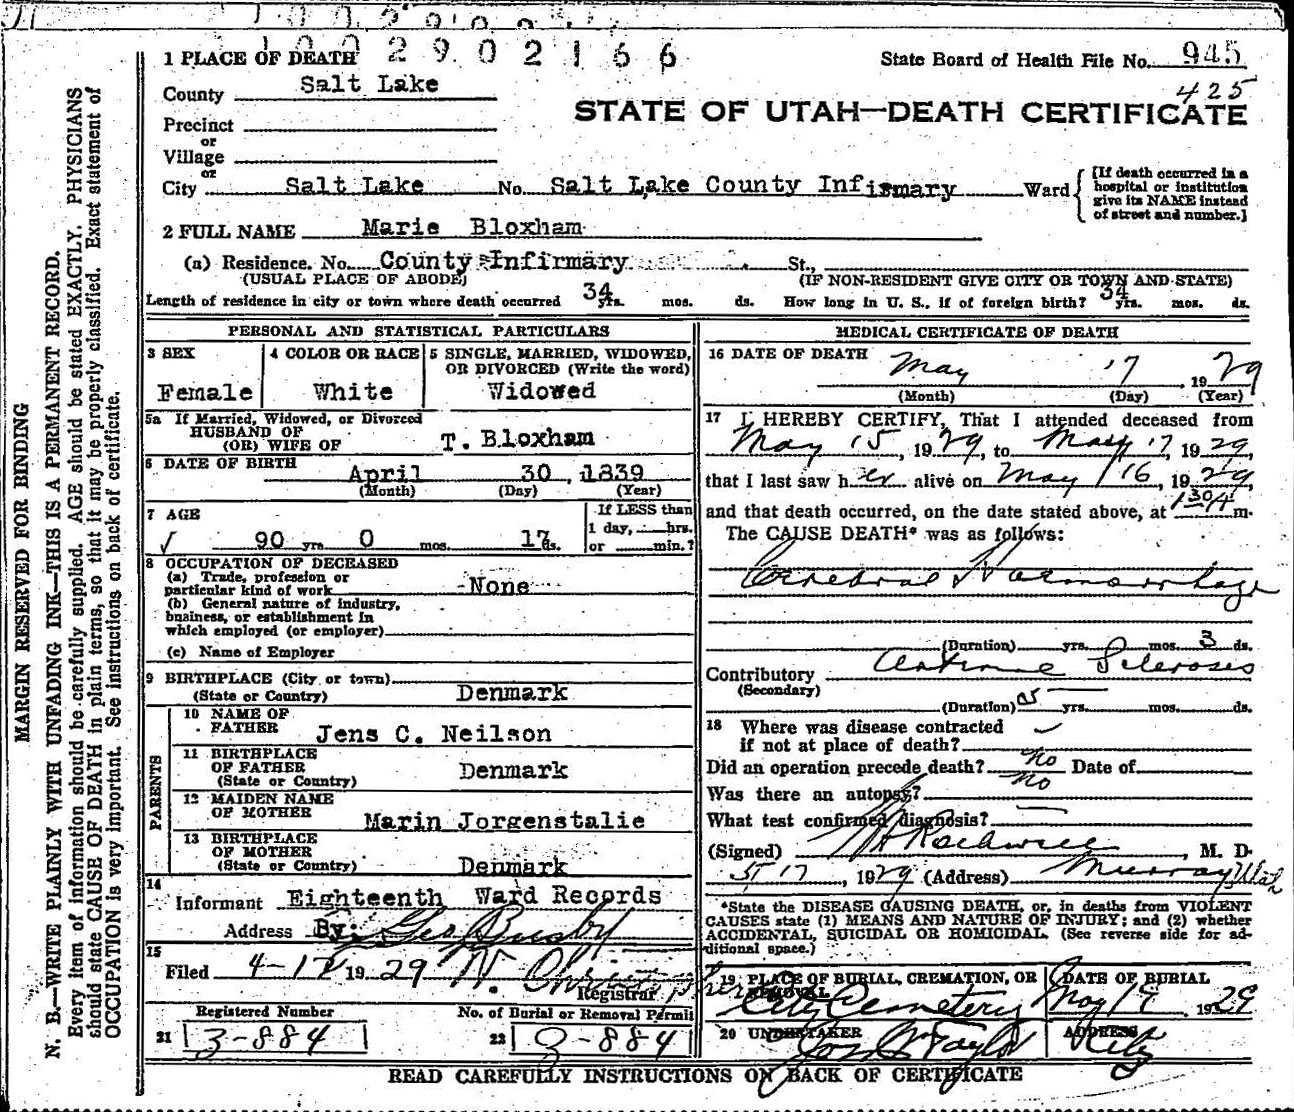 1 0 0 2 9 0 2 1 6 6
1 PLACE OF DEATH
State Board of Health File No. 945
County Salt Lake
425
STATE OF UTAH—DEATH CERTIFICATE
Precinct
or
Village
or
City Salt Lake No. Salt Lake County Infirmary Ward
[If death occurred in a
hospital or institution
give its NAME instead
of street and number.]
2 FULL NAME Marie Bloxham
(a) Residence. No. County Infirmary St.,
(USUAL PLACE OF ABODE)
(IF NON-RESIDENT GIVE CITY OR TOWN AND STATE)
Length of residence in city or town where death occurred 34 yrs. mos. ds. How long in U. S., if of foreign birth? 34 yrs. mos. ds.
PERSONAL AND STATISTICAL PARTICULARS
3 SEX
Female
4 COLOR OR RACE
White
5 SINGLE, MARRIED, WIDOWED,
OR DIVORCED (Write the word)
Widowed
5a If Married, Widowed, or Divorced
HUSBAND OF
(OR) WIFE OF T. Bloxham
6 DATE OF BIRTH
April 30, 1839
(Month) (Day) (Year)
7 AGE
90 yrs. 0 mos. 17 ds.
If LESS than
1 day, hrs.
or min.?
8 OCCUPATION OF DECEASED
(a) Trade, profession or
particular kind of work None
(b) General nature of industry,
business, or establishment in
which employed (or employer)
(c) Name of Employer
9 BIRTHPLACE (City or town)
(State or Country) Denmark
PARENTS
10 NAME OF
FATHER Jens C. Neilson
11 BIRTHPLACE
OF FATHER
(State or Country) Denmark
12 MAIDEN NAME
OF MOTHER Marin Jorgenstalie
13 BIRTHPLACE
OF MOTHER
(State or Country) Denmark
14
Informant Eighteenth Ward Records
Address By: Geo Busby
15
Filed 4-17 1929
Registrar
Registered Number
21 3-884
No. of Burial or Removal Permit
22 3-884
MEDICAL CERTIFICATE OF DEATH
16 DATE OF DEATH
May 17, 1929
(Month) (Day) (Year)
17 I HEREBY CERTIFY, That I attended deceased from
May 15, 1929, to May 17, 1929,
that I last saw her alive on May 16, 1929,
and that death occurred, on the date stated above, at 130 A m.
The CAUSE DEATH* was as follows:
Cerebral Haemorrhage
(Duration) yrs. mos. 3 ds.
Contributory
(Secondary)
Sclerosis
(Duration) yrs. mos. ds.
18 Where was disease contracted
if not at place of death?
Did an operation precede death? no Date of
Was there an autopsy? no
What test confirmed diagnosis?
(Signed) Rockwell, M. D.
5/17, 1929 (Address) Murray, Utah
*State the DISEASE CAUSING DEATH, or, in deaths from VIOLENT
CAUSES state (1) MEANS AND NATURE OF INJURY; and (2) whether
ACCIDENTAL, SUICIDAL OR HOMICIDAL. (See reverse side for ad-
ditional space.)
19 PLACE OF BURIAL, CREMATION, OR
REMOVAL
City Cemetery
DATE OF BURIAL
May 19 1929
20 UNDERTAKER
Taylor
ADDRESS
City
READ CAREFULLY INSTRUCTIONS ON BACK OF CERTIFICATE
MARGIN RESERVED FOR BINDING
N. B.—WRITE PLAINLY WITH UNFADING INK—THIS IS A PERMANENT RECORD.
Every item of information should be carefully supplied. AGE should be stated EXACTLY. PHYSICIANS
should state CAUSE OF DEATH in plain terms, so that it may be properly classified. Exact statement of
OCCUPATION is very important. See instructions on back of certificate.